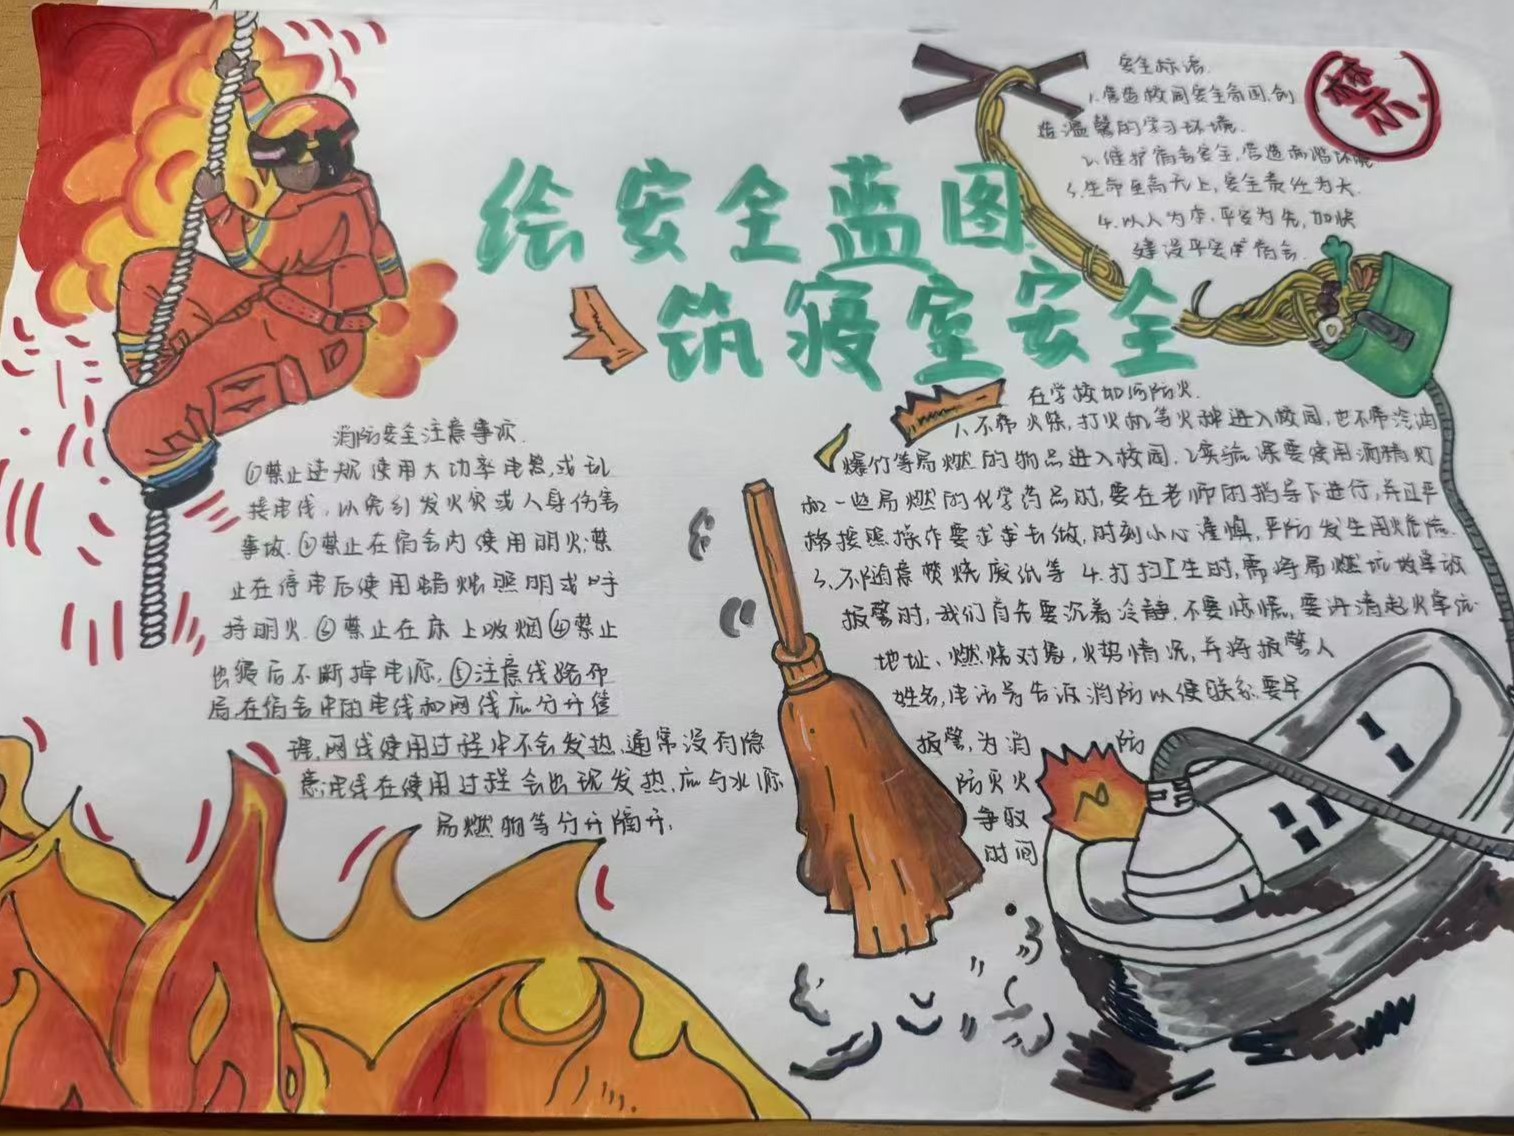 绘安全蓝图
筑寝室安全
禁
安全标语.
1.营造校园安全氛围,创
造温馨的学习环境.
2.维护宿舍安全,营造和谐环境
3.生命至高无上,安全责任为大.
4.以人为本,平安为先,加快
建设平安宿舍.
消防安全注意事项.
①禁止违规使用大功率电器,或乱
接电线,以免引发火灾或人身伤害
事故.②禁止在宿舍内使用明火;禁
止在停电后使用蜡烛照明或
持明火.③禁止在床上吸烟④禁止
后不断掉电源,⑤注意线路布
局,在宿舍中的电线和网线应分开管
理,网线使用过程中不会发热,通常没有隐
患;电线在使用过程会出现发热,应与水源
易燃物等分开隔开;
在学校如何防火.
1.不带火柴,打火机等火种进入校园,也不带汽油
爆竹等易燃的物品进入校园.2.实验课要使用酒精灯
和一些易燃的化学药品时,要在老师的指导下进行,并且严
格按照操作要求去做,时刻小心谨慎,严防发生用火危险.
3.不随意焚烧废纸等 4.打扫卫生时,需将易燃
报警时,我们首先要沉着冷静,不要惊慌,要讲清起火单位
地址、燃烧对象,火势情况,并将报警人
姓名,电话号告诉消防以便联系,要早
报警,为消防
防灭火
争取
时间